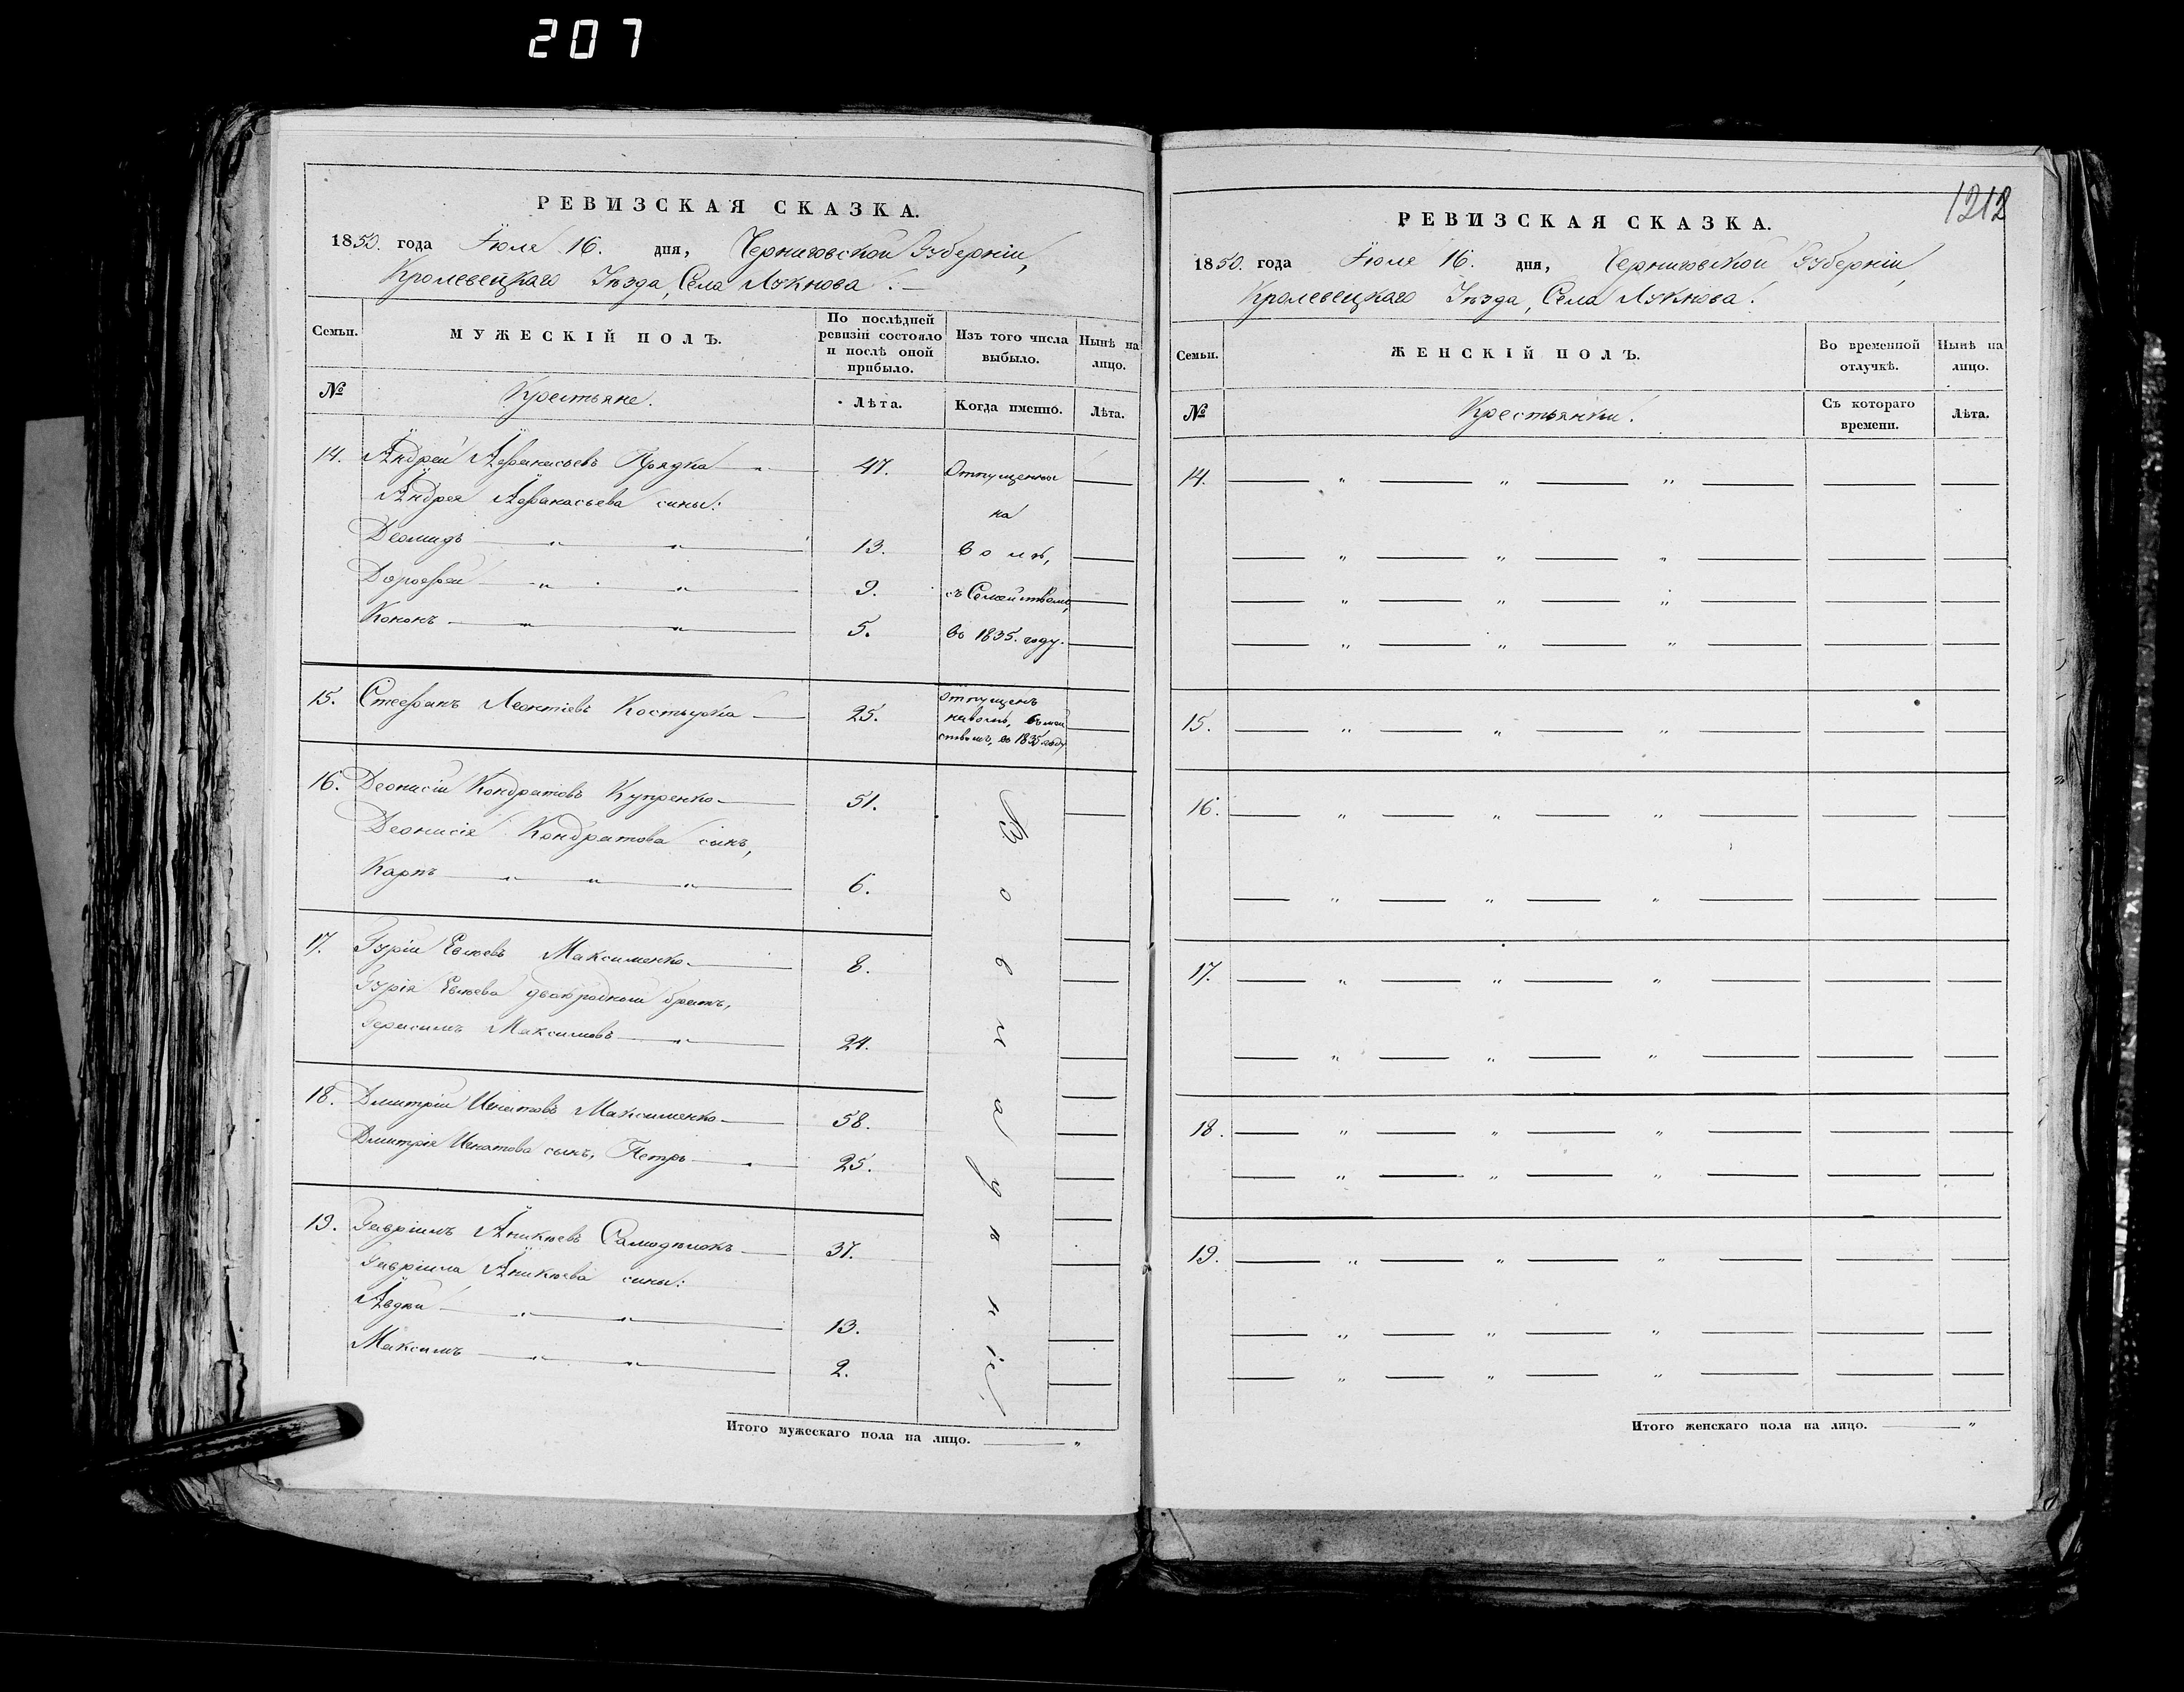 207
РЕВИЗСКАЯ СКАЗКА.
1850. года Іюля 16. дня, Черниговской Губерніи,
Кролевецкаго Уѣзда, Села Лукнова.
Семьи.
МУЖЕСКІЙ ПОЛЪ.
По послѣдней ревизіи состояло и послѣ оной прибыло.
Изъ того числа выбыло.
Нынѣ на лицо.
№
Крестьяне.
Лѣта.
Когда именно.
Лѣта.
14. Андрей Афанасьевъ Прядка 47. Отпущены
Андрея Афанасьева сины: на
Деомидъ 13. волю,
Дорофей 9. съ Семействомъ,
Кононъ 5. въ 1835. году.
15. Стефанъ Леонтіевъ 25. отпущенъ
на волю,
ствомъ, въ 1835 году
16. Деонисій Кондратовъ Купренко 51.
Деонисія Кондратова сынъ,
Карпъ 6.
17. Гурій Евлѣевъ Максименко 8.
Гурія Евлѣева двоюродный братъ,
Герасимъ Максимовъ 24.
18. Дмитрій Игнатовъ Максименко 58.
Дмитрія Игнатова сынъ, Петръ 25.
19. Гавріилъ Аникѣевъ 37.
Гавріила Аникѣева сины:
Авдѣй 13.
Максимъ 2.
Итого мужескаго пола на лицо. "
1212
РЕВИЗСКАЯ СКАЗКА.
1850. года Іюля 16. дня, Черниговской Губерніи,
Кролевецкаго Уѣзда, Села Лукнова.
Семьи.
ЖЕНСКІЙ ПОЛЪ.
Во временной отлучкѣ.
Нынѣ на лицо.
№
Крестьянки.
Съ котораго времени.
Лѣта.
14.
15.
16.
17.
18.
19.
Итого женскаго пола на лицо. "